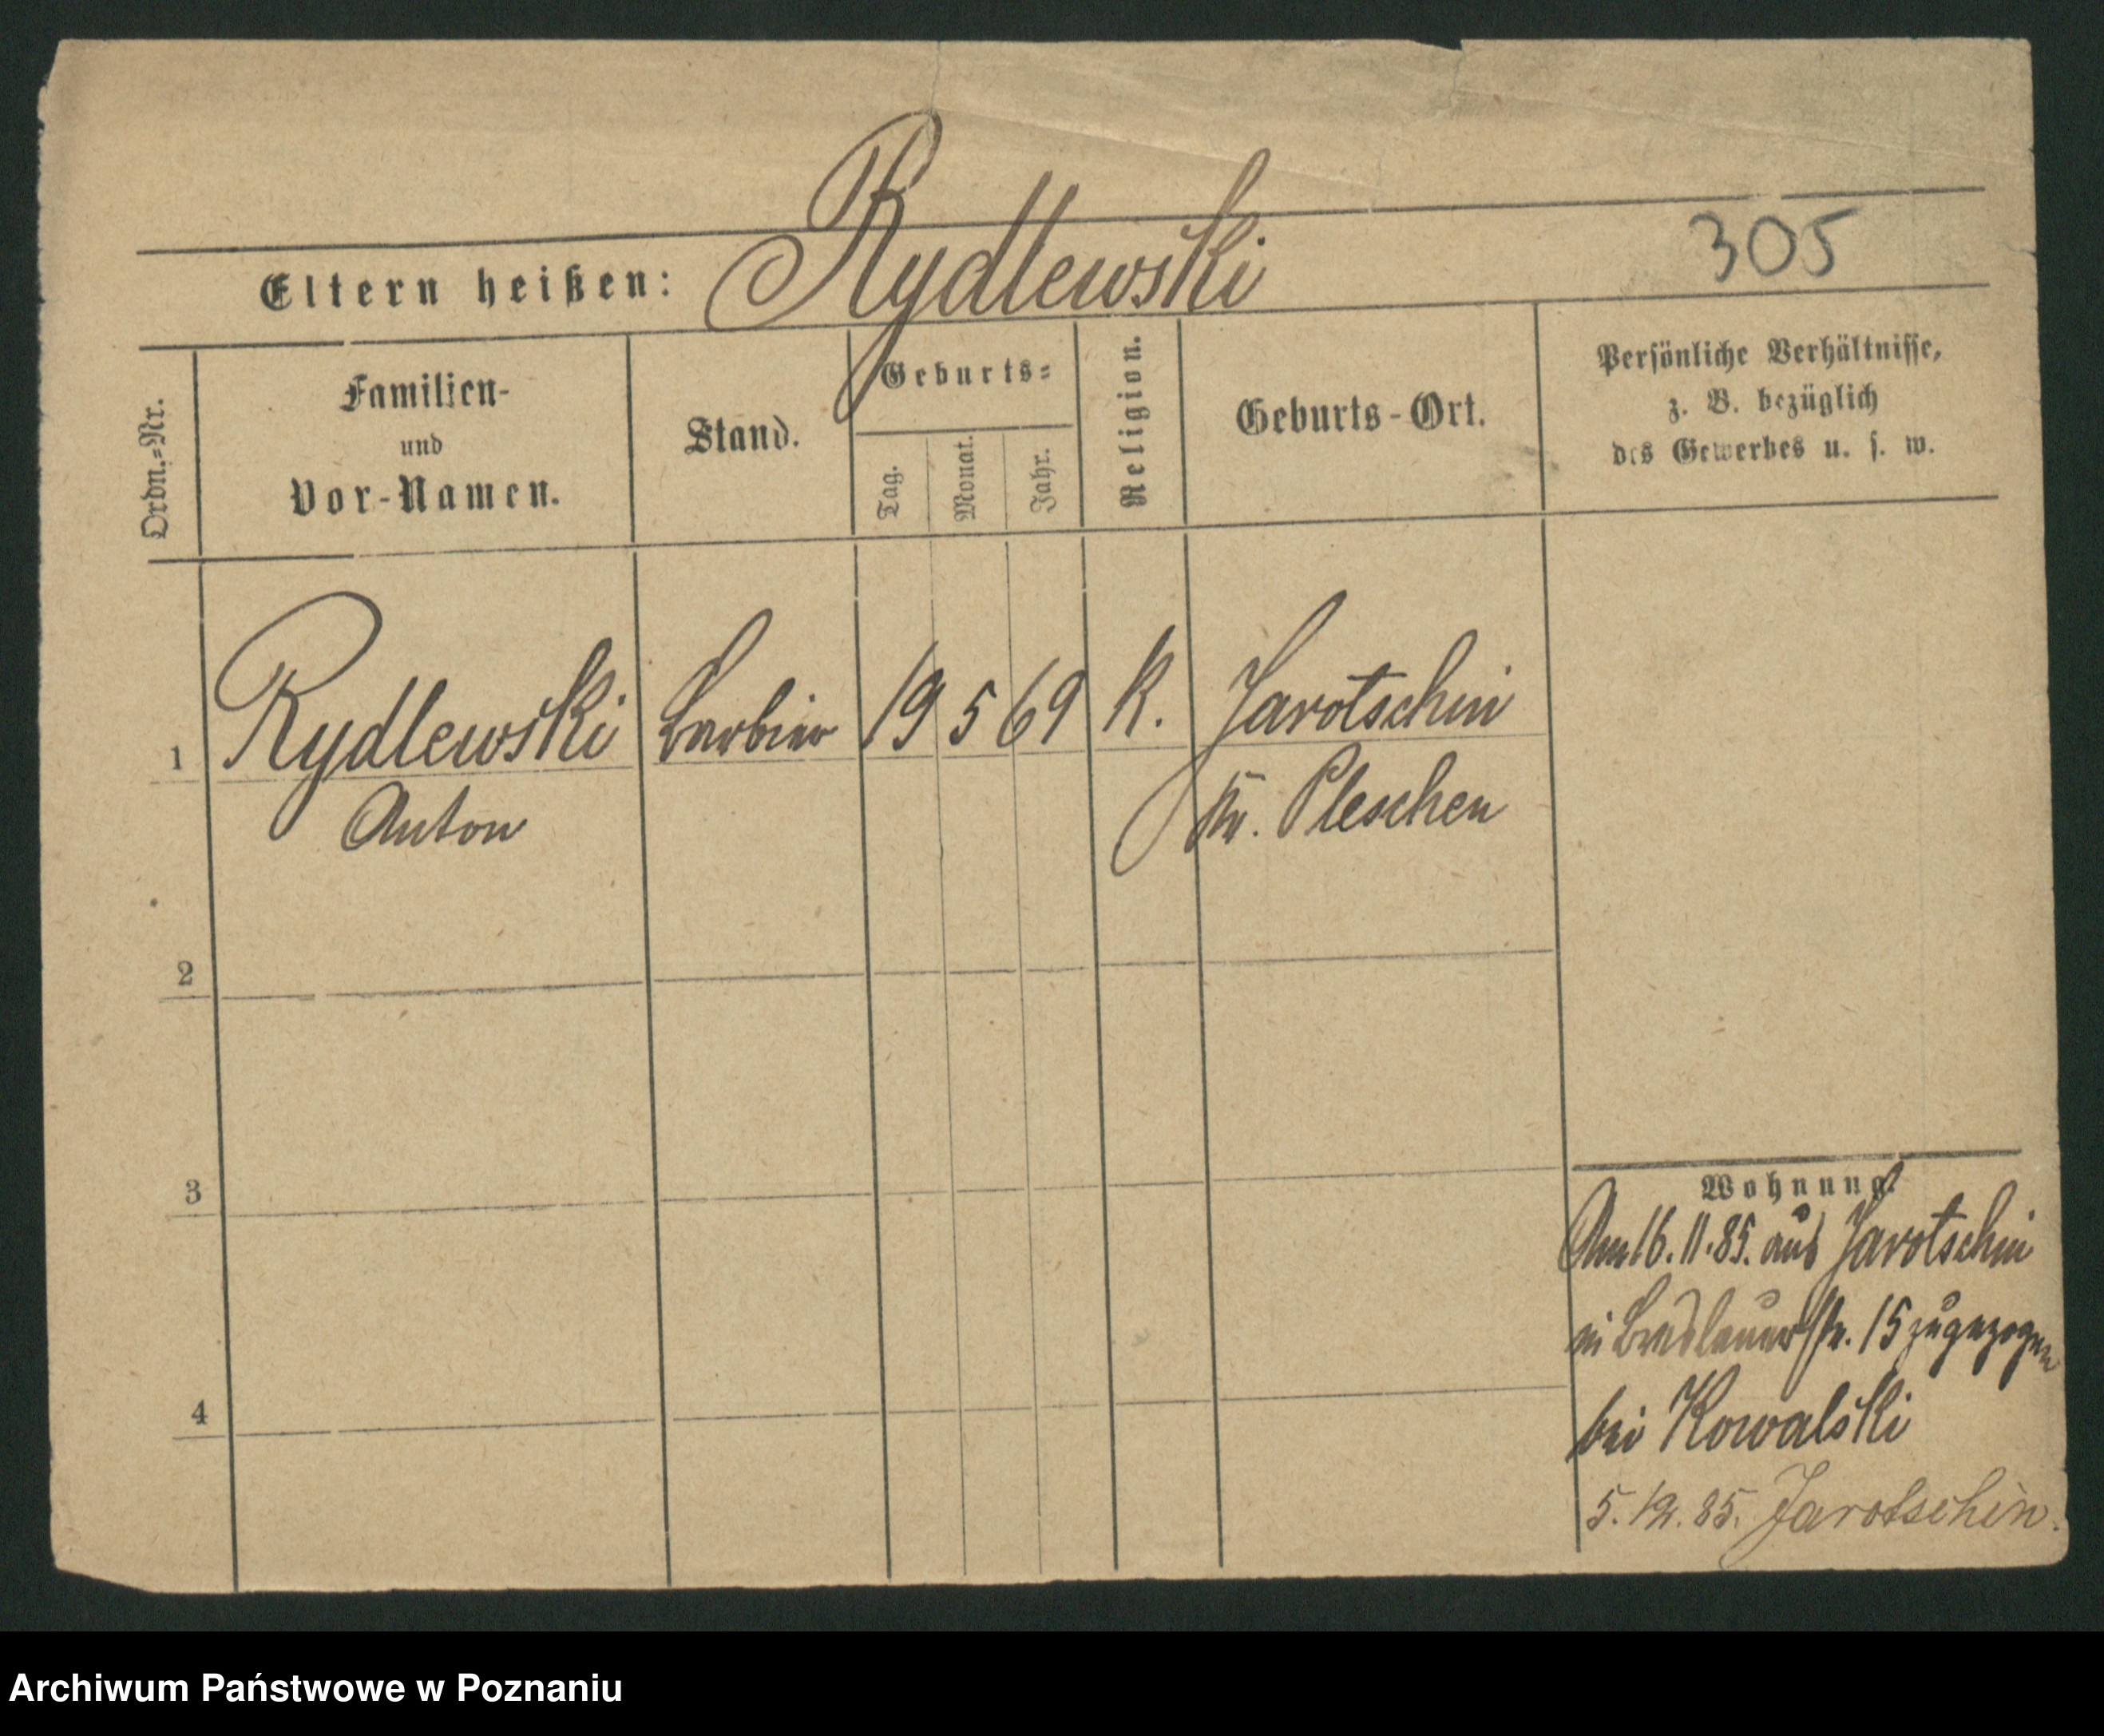 Rydlewski
305
Eltern heißen:
Ordn.-Nr.
Familien-
und
Vor-Namen.
Stand.
Geburts-
Tag.
Monat.
Jahr.
Religion.
Geburts-Ort.
Persönliche Verhältnisse,
z. B. bezüglich
des Gewerbes u. s. w.
1
Rydlewski
Anton
Barbier
19
5
69
K.
Jarotschin
Kr. Pleschen
2
3
4
Wohnung.
Am 16.11.85. aus Jarotschin
in Breslauerstr. 15 zugezogen
bei Kowalski
5.12.85. Jarotschin.
Archiwum Państwowe w Poznaniu